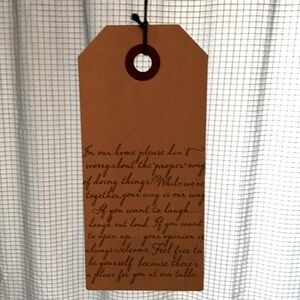 In our home please don't
worry about the "proper" way
of doing things. While we're
together, your way is our way.
If you want to laugh...
laugh out loud. If you want
to open up... your opinion is
always welcome. Feel free to
be yourself, because there's
a place for you at our table.